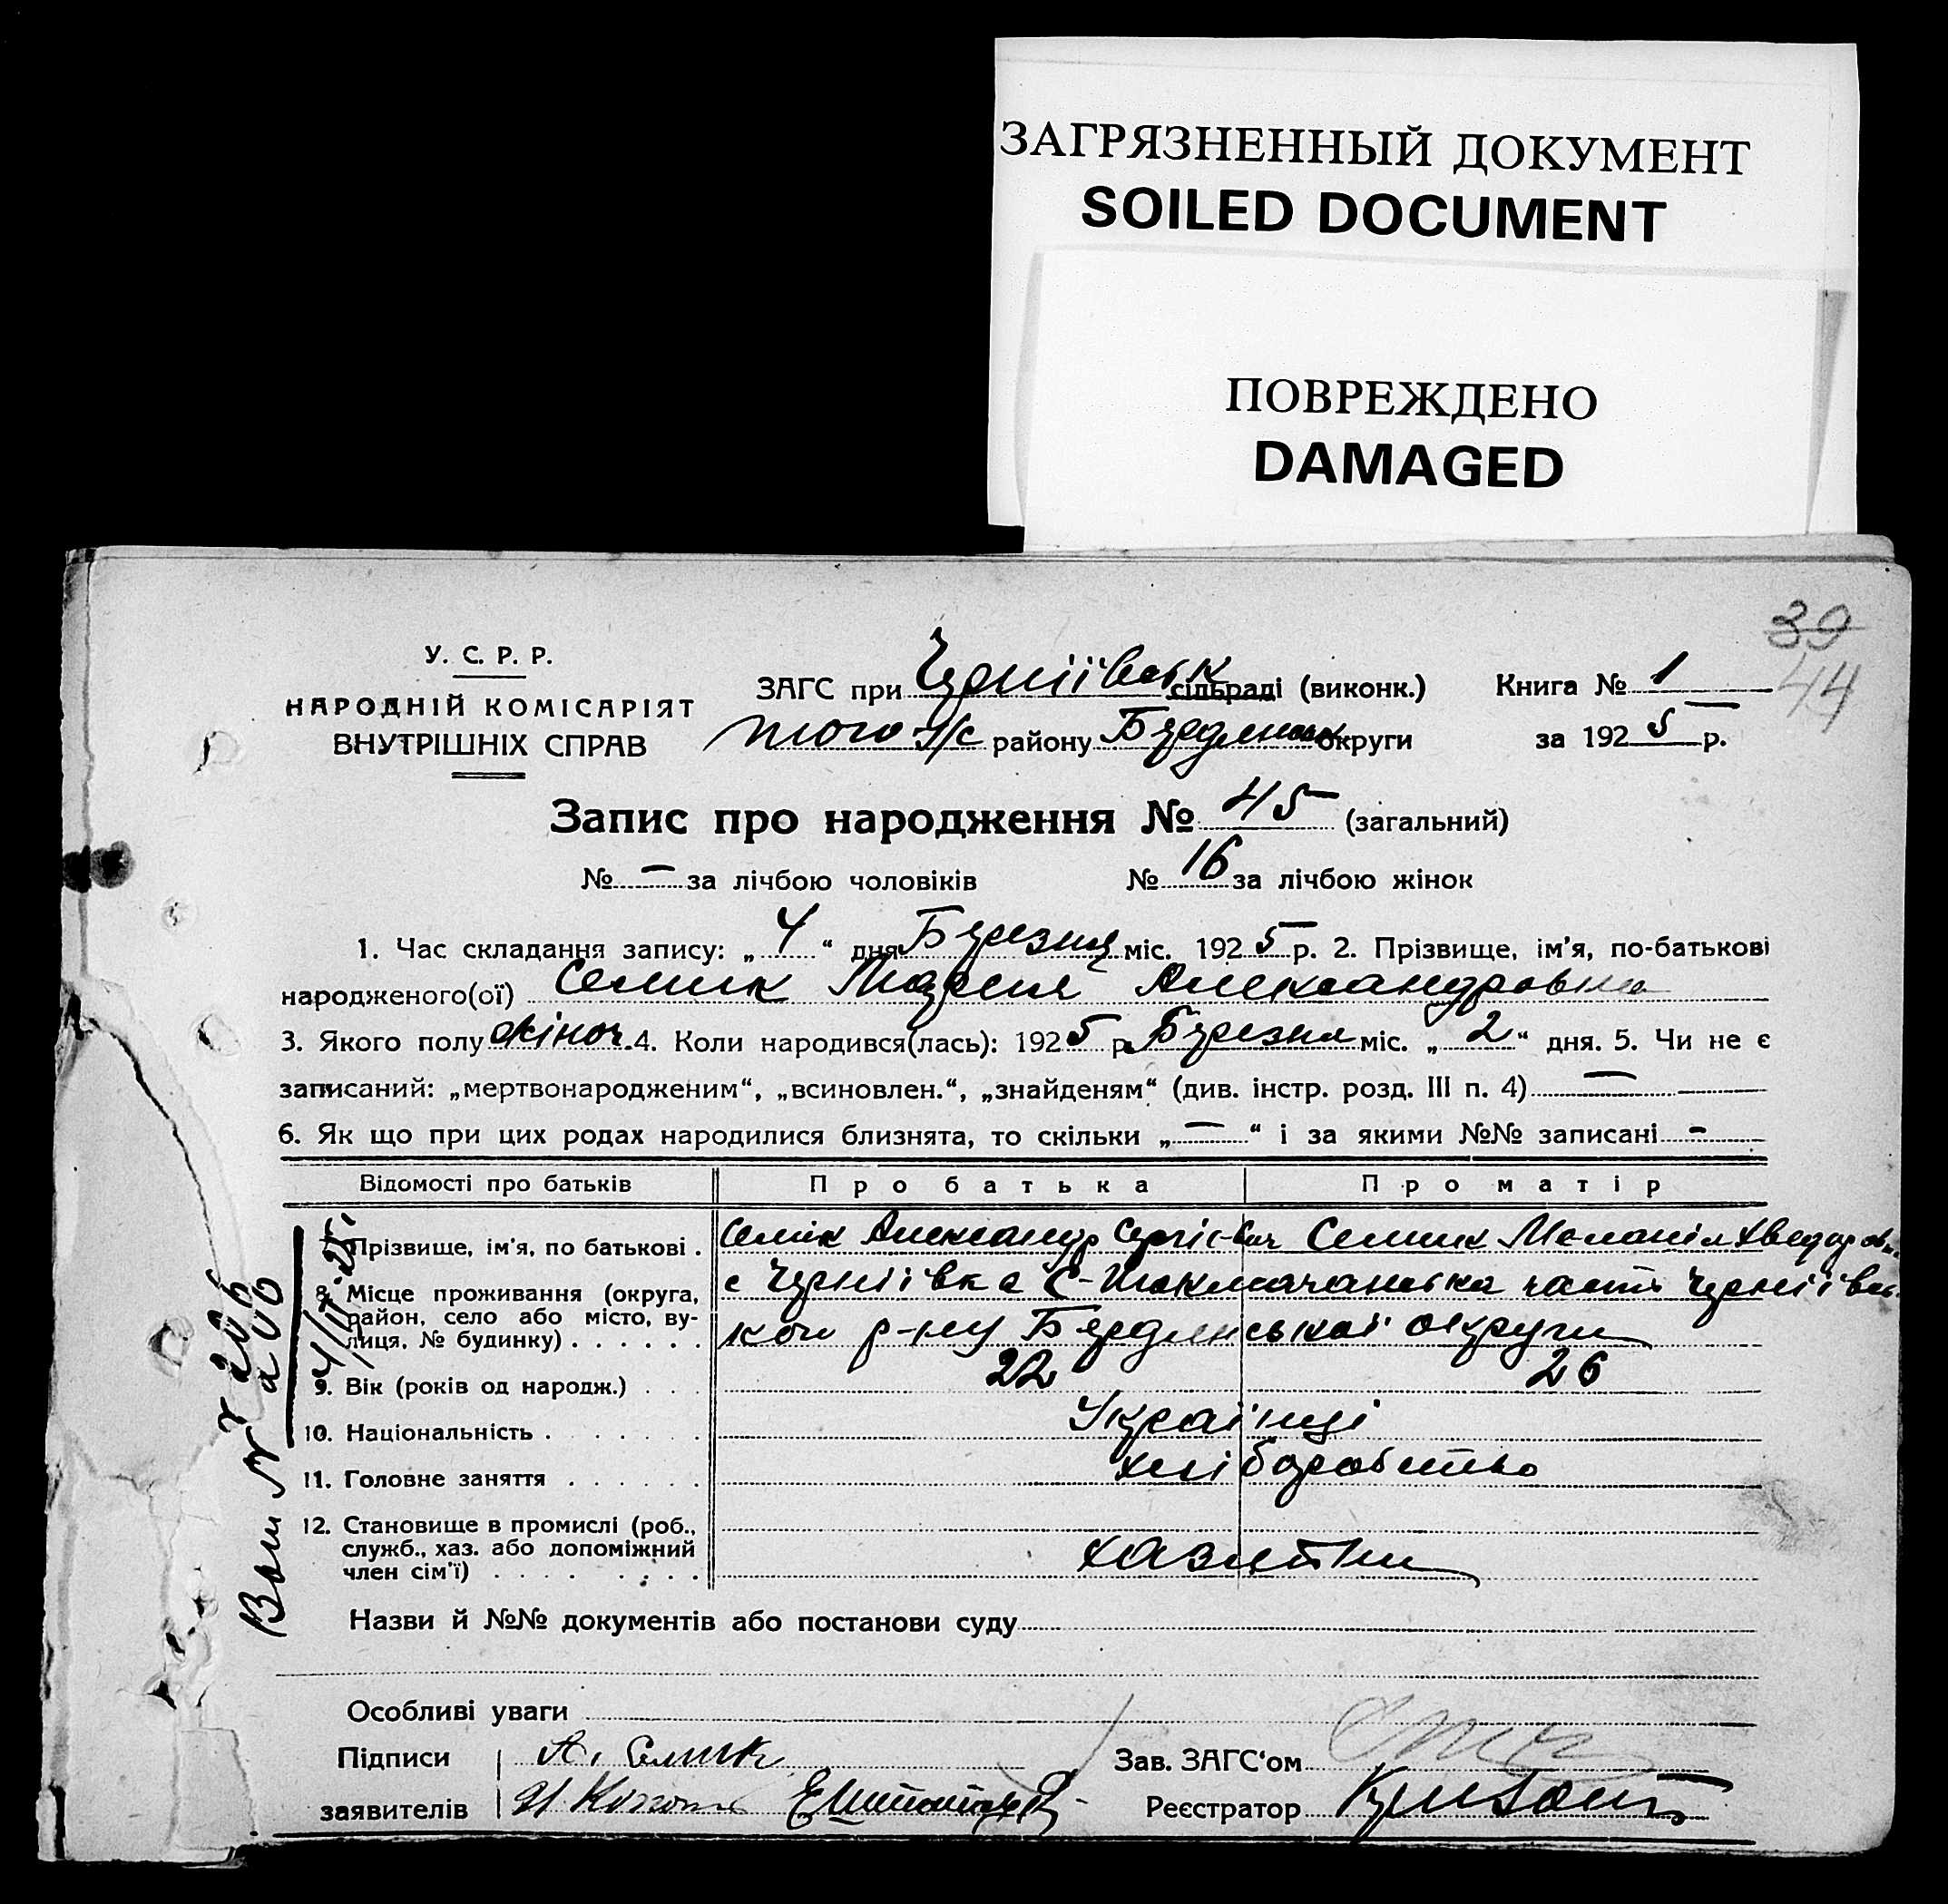 ЗАГРЯЗНЕННЫЙ ДОКУМЕНТ
SOILED DOCUMENT
ПОВРЕЖДЕНО
DAMAGED
39
44
У. С. Р. Р.
НАРОДНІЙ КОМІСАРІЯТ
ВНУТРІШНІХ СПРАВ
ЗАГС при Черніївськ сільраді (виконк.)
того ж/с району Бердянськ округи
Книга № 1
за 1925 р.
Запис про народження № 45 (загальний)
№ — за лічбою чоловіків № 16 за лічбою жінок
1. Час складання запису: „ 4 “ дня Березня міс. 1925 р. 2. Прізвище, ім'я, по-батькові
народженого(ої) Семик Мария Александровна
3. Якого полу жіноч. 4. Коли народився(лась): 1925 р. Березня міс. „ 2 “ дня. 5. Чи не є
записаний: „мертвонародженим“, „всиновлен.“, „знайденям“ (див. інстр. розд. III п. 4) —
6. Як що при цих родах народилися близнята, то скільки „ — “ і за якими №№ записані -
Відомості про батьків Про батька Про матір
7. Прізвище, ім'я, по батькові . Семік Александр Сергіевич Семик Меланія Хведоровна
8. Місце проживання (округа, с Черніївка С-Токмачанська часть Черніївсь-
район, село або місто, ву-
лиця, № будинку) . . . . . . кой р-ну Бердянськаї округи
9. Вік (років од народж.) . . . 22 26
10. Національність . . . . . . Українці
11. Головне заняття . . . . . . хліборобство
12. Становище в промислі (роб.,
служб., хаз. або допоміжний
член сім'ї) . . . . . . . . хазяіни
Назви й №№ документів або постанови суду
Особливі уваги
Підписи А. Семик Зав. ЗАГС'ом
заявителів Реєстратор